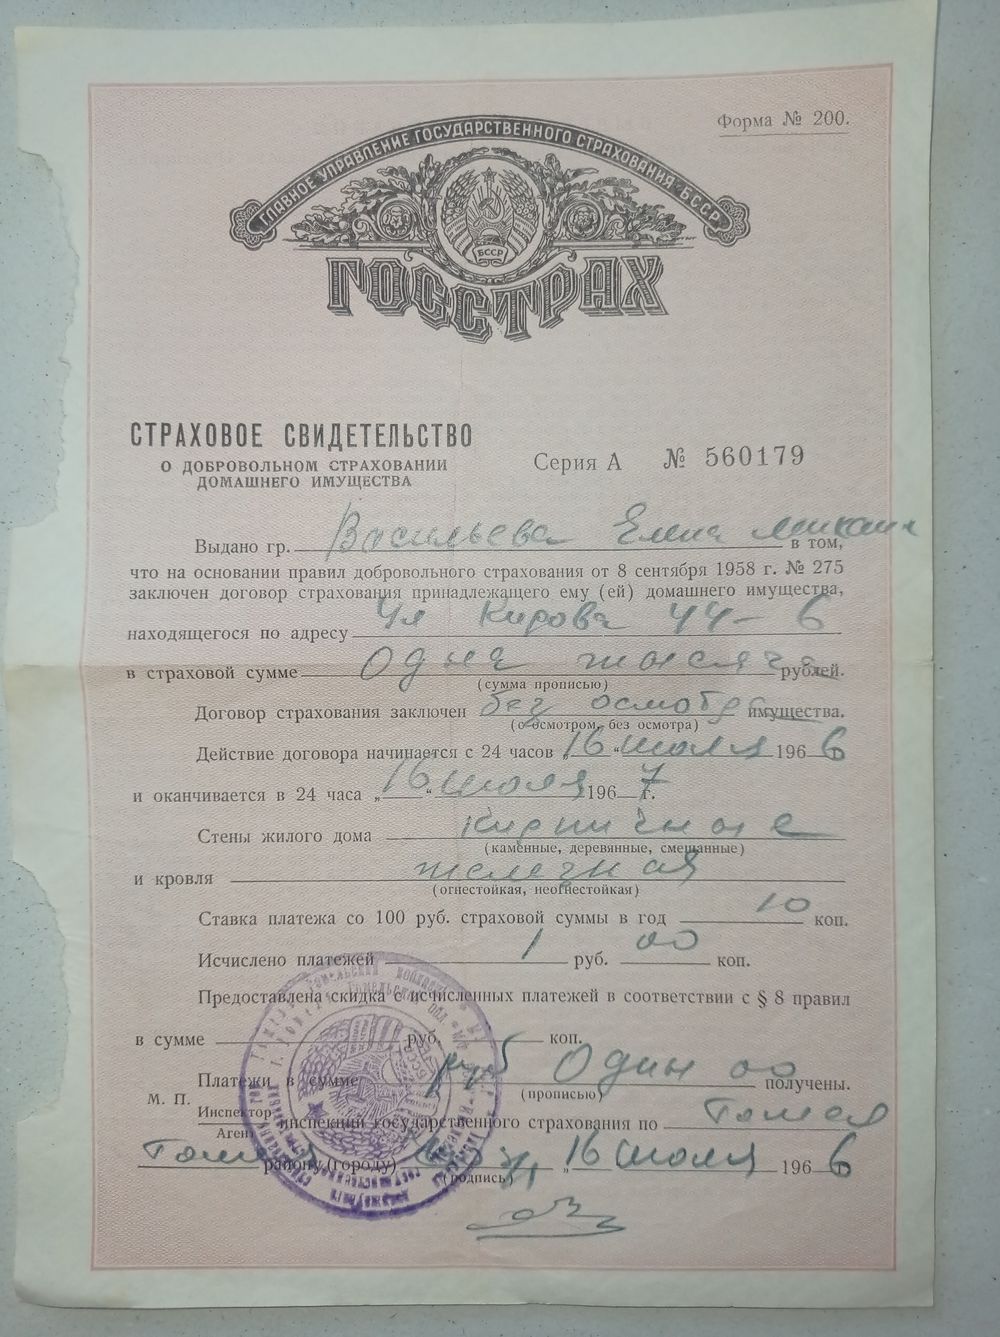 Форма № 200.
ГЛАВНОЕ УПРАВЛЕНИЕ ГОСУДАРСТВЕННОГО СТРАХОВАНИЯ БССР
БССР
ГОССТРАХ
СТРАХОВОЕ СВИДЕТЕЛЬСТВО
О ДОБРОВОЛЬНОМ СТРАХОВАНИИ
ДОМАШНЕГО ИМУЩЕСТВА
Серия А № 560179
Выдано гр. Васильева Елена Михаил в том,
что на основании правил добровольного страхования от 8 сентября 1958 г. № 275
заключен договор страхования принадлежащего ему (ей) домашнего имущества,
находящегося по адресу Ул Кирова 44-6
в страховой сумме Одна тысяча рублей.
(сумма прописью)
Договор страхования заключен без осмотра имущества.
(с осмотром, без осмотра)
Действие договора начинается с 24 часов „16“ июля 1966
и оканчивается в 24 часа „16“ июля 1967 г.
Стены жилого дома кирпичные
(каменные, деревянные, смешанные)
и кровля железная
(огнестойкая, неогнестойкая)
Ставка платежа со 100 руб. страховой суммы в год 10 коп.
Исчислено платежей 1 руб. 00 коп.
Предоставлена скидка с исчисленных платежей в соответствии с § 8 правил
в сумме руб. коп.
Платежи в сумме руб Один 00 получены.
(прописью)
М. П.
Инспектор
Агент
инспекции государственного страхования по Гомел
району (городу) „16 июля 1966
(подпись)